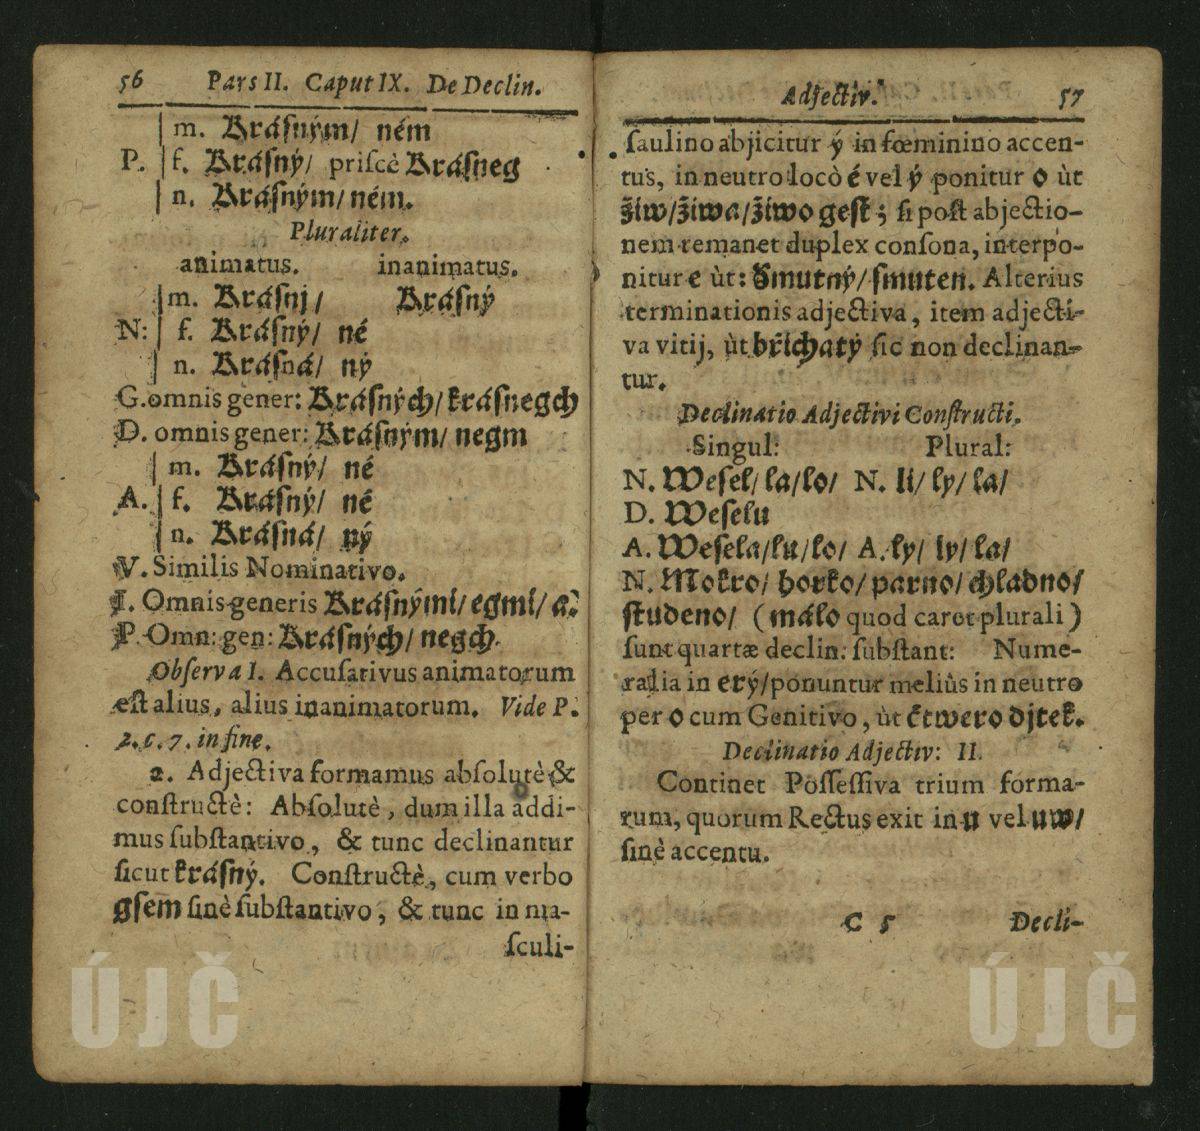 56 Pars II. Caput IX. De Declin.
m. Krásným/ ném
P. f. Krásný/ priſcè Krásneg
n. Krásným/ ném.
Pluraliter.
animatus. inanimatus.
m. Krásnj/ Krásný
N: f. Krásný/ né
n. Krásná/ ný
G. omnis gener: Krásných/ krásnegch
D. omnis gener: Krásným/ negm
m. Krásný/ né
A. f. Krásný/ né
n. Krásná/ ný
V. Similis Nominativo.
I. Omnis generis Krásnými/ egmi/ a:
P. Omn: gen: Krásných/ negch.
Obſerva 1. Accuſativus animatorum
eſt alius, alius inanimatorum. Vide P.
2. c. 7. in fine.
2. Adjectiva formamus abſolutè &
conſtructè: Abſolutè, dum illa addi-
mus ſubſtantivo, & tunc declinantur
ſicut krásný. Conſtructè, cum verbo
gsem ſinè ſubſtantivo, & tunc in ma-
ſculi-
Adjectiv. 57
ſaulino abjicitur ý in fœminino accen-
tus, in neutro locò é vel ý ponitur o ùt
žiw/ žiwa/ žiwo geſt; ſi poſt abjectio-
nem remanet duplex conſona, interpo-
nitur e ùt: Smutný/ ſmuten. Alterius
terminationis adjectiva, item adjecti-
va vitij, ùt břichatý ſic non declinan-
tur.
Declinatio Adjectivi Conſtructi.
Singul: Plural:
N. Weſel/ la/ lo/ N. li/ ly/ la/
D. Weſelu
A. Weſela/ lu/ lo/ A. ly/ ly/ la/
N. Mokro/ horko/ parno/ chladno/
ſtudeno/ (málo quod caret plurali)
ſunt quartæ declin: ſubſtant: Nume-
ralia in erý/ ponuntur meliùs in neutro
per o cum Genitivo, ùt čtwero djtek.
Declinatio Adjectiv: II.
Continet Poſſeſſiva trium forma-
rum, quorum Rectus exit in u vel uw/
ſinè accentu.
C 5 Decli-
ÚJČ ÚJČ